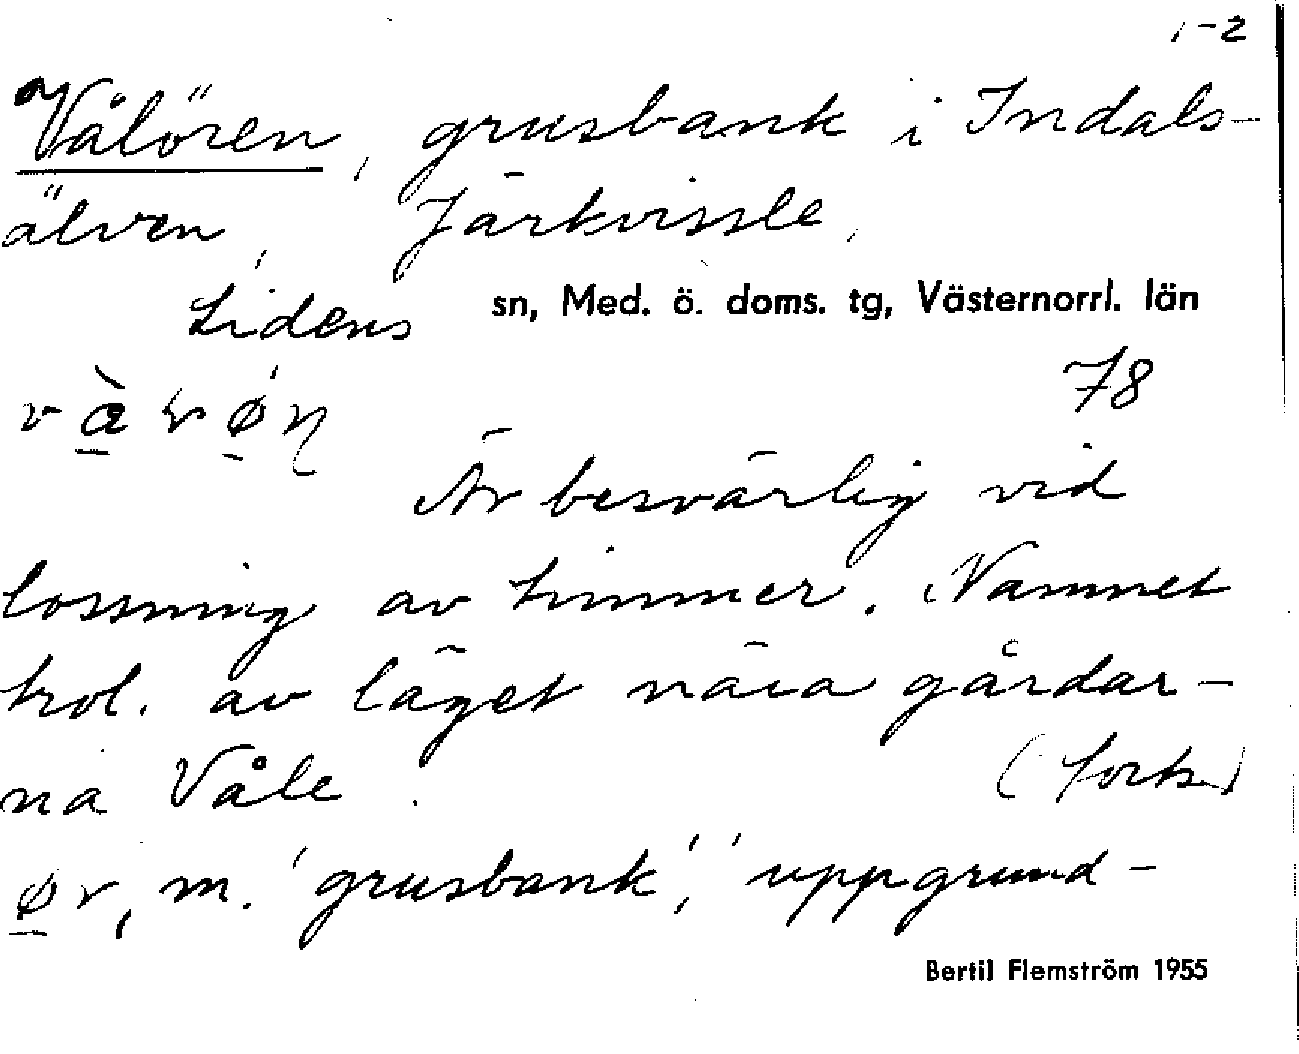 1-2
Vålören, grusbank i Indals-
älven, Järkvissle,
Lidens sn, Med. ö. doms. tg, Västernorrl. län
78
Är besvärlig vid
lossning av timmer. Namnet
trol. av läget nära gårdar-
na Våle. (forts.)
ør, m. 'grusbank', 'uppgrund-
Bertil Flemström 1955